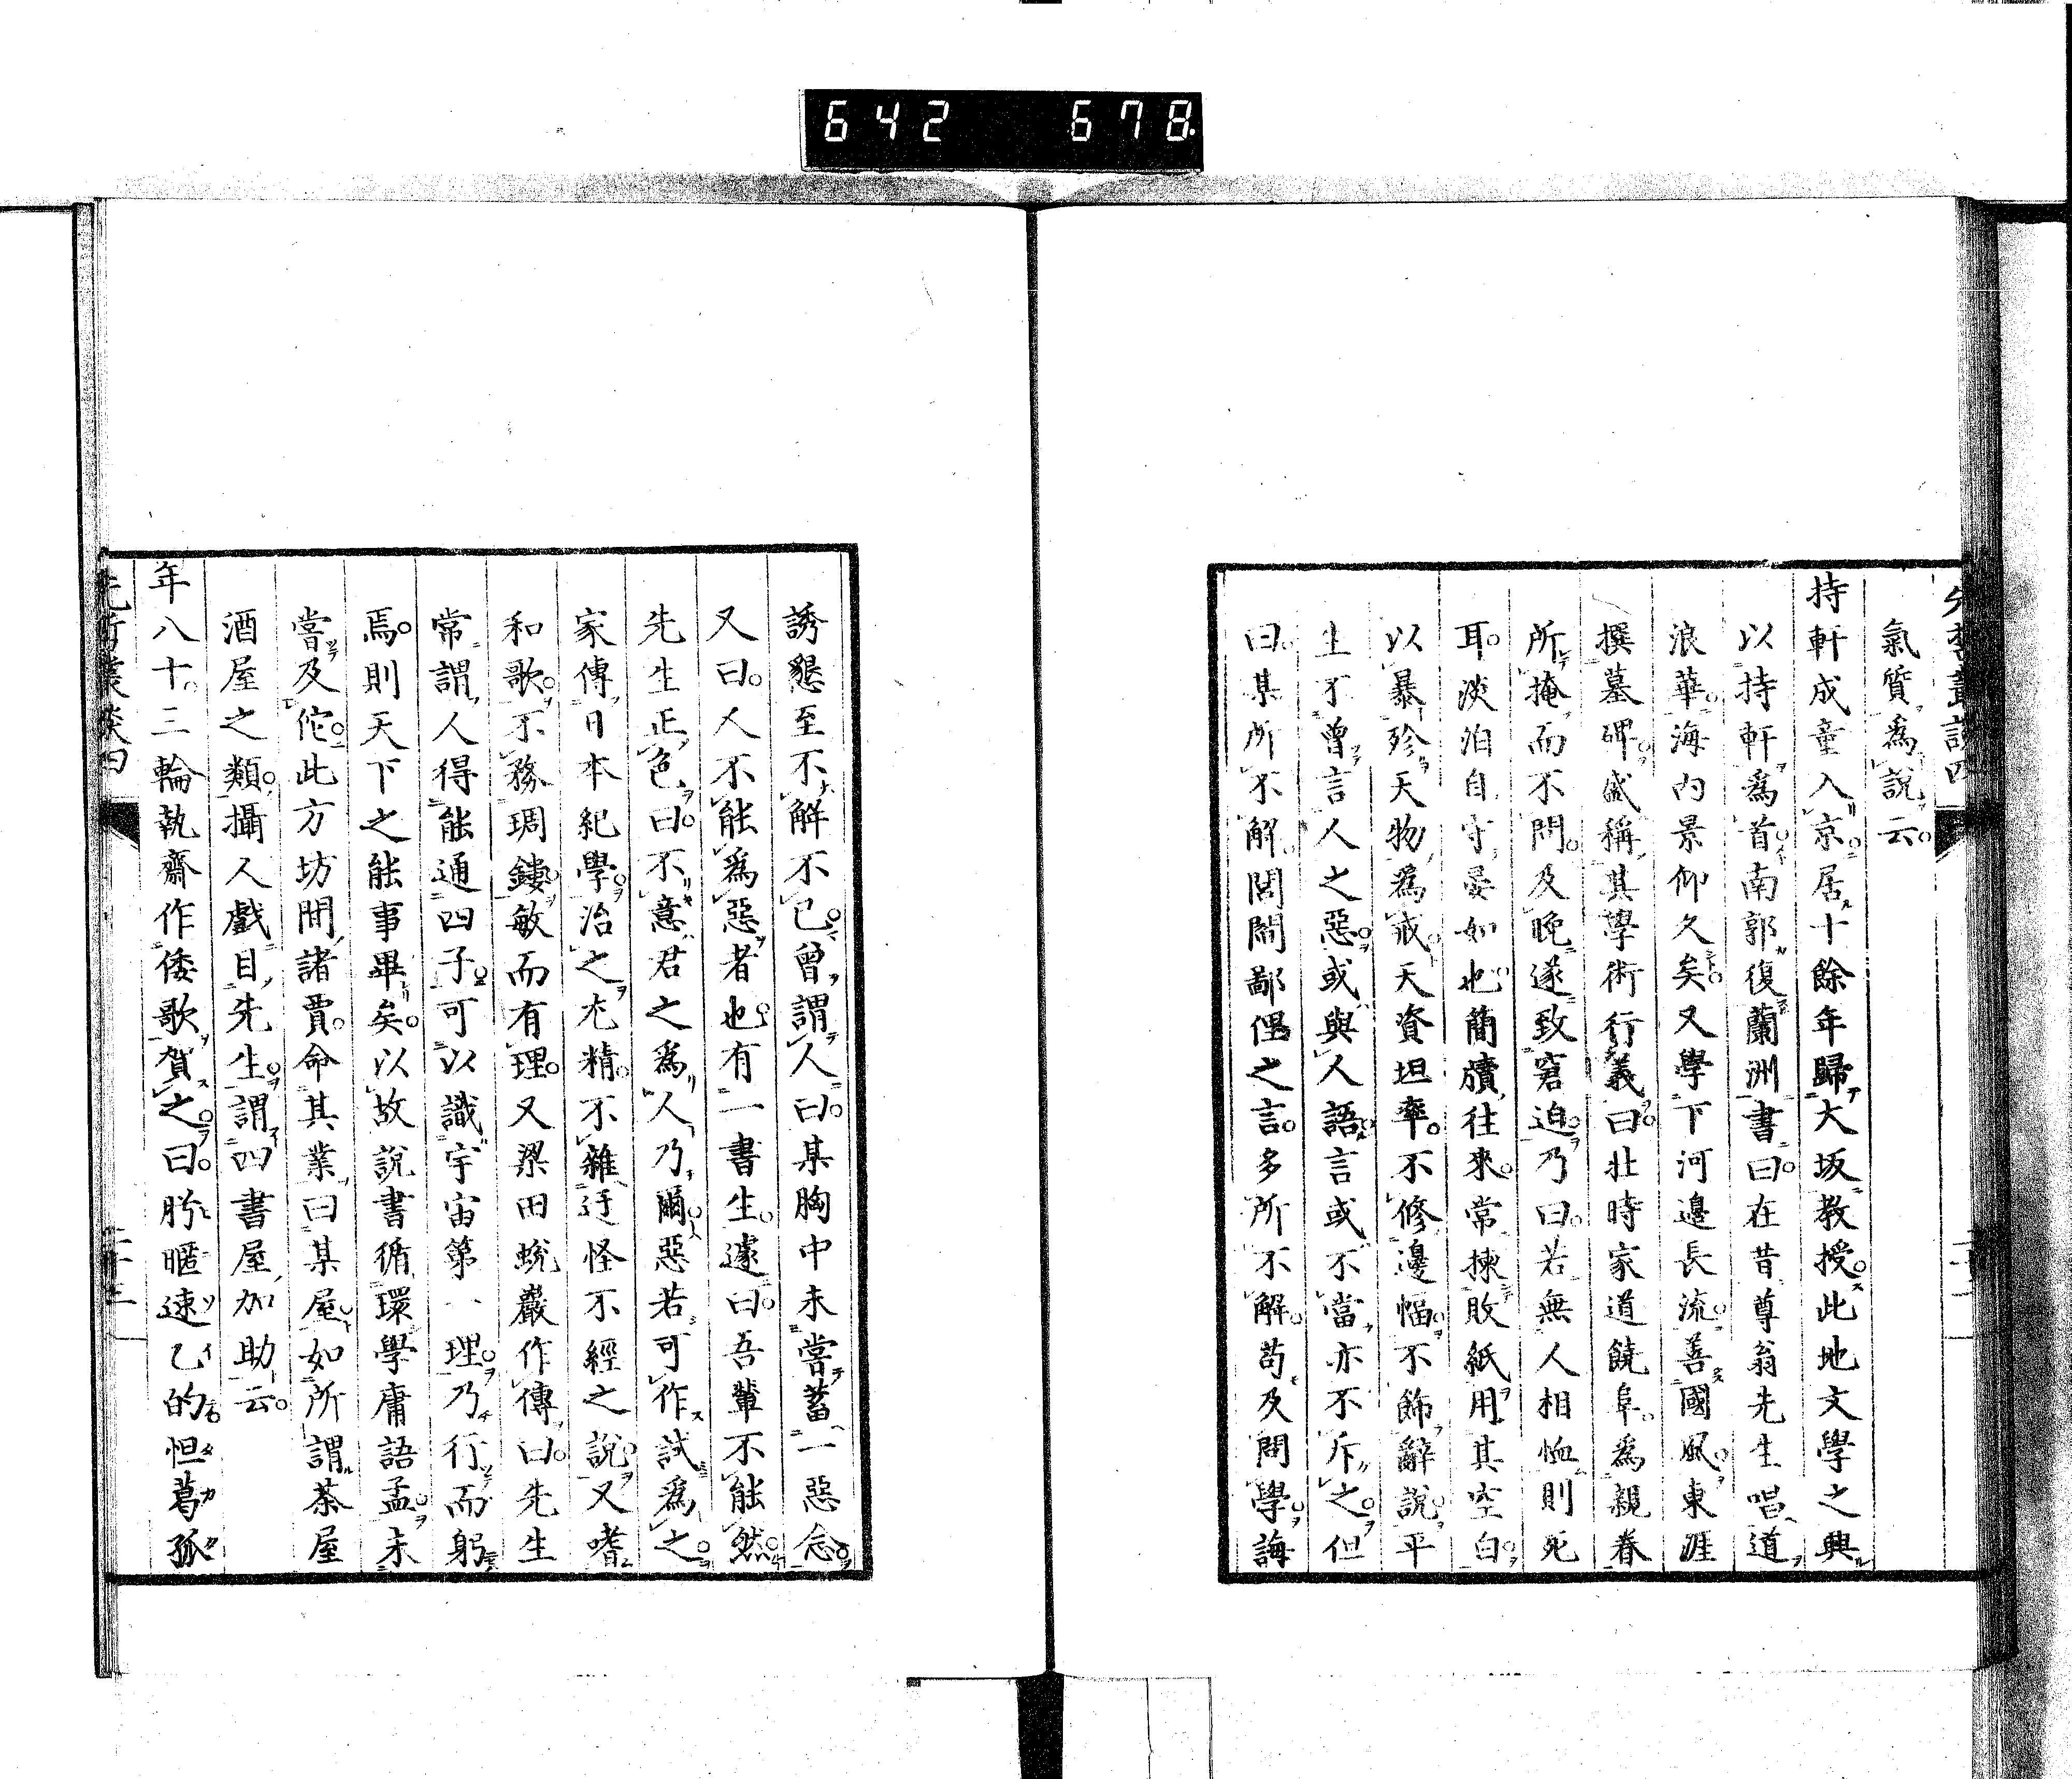 642 678
先哲叢談四
氣質爲說云
持軒成童入京居十餘年歸大坂教授此地文學之興
以持軒爲首南郭復蘭洲書曰在昔尊翁先生唱道
浪華海內景仰久矣又學下河邉長流善國風東涯
撰墓碑盛稱其學術行義曰壯時家道饒阜爲親眷
所掩而不問及晚遂致窘迫乃曰若無人相恤則死
耳淡泊自守晏如也簡牘往來常揀敗紙用其空白
以暴殄天物爲戒天資坦率不修邊幅不飾辭說平
生不曾言人之惡或與人語言或不當亦不斥之但
曰某所不解閭閻鄙俚之言多所不解苟及問學誨
誘懇至不解不已曾謂人曰某胸中未嘗蓄一惡念
又曰人不能爲惡者也有一書生遽曰吾輩不能然
先生正色曰不意君之爲人乃爾惡若可作試爲之
家傳日本紀學治之尤精不雜迂怪不經之說又嗜
和歌不務琱鏤敏而有理又梁田蛻巖作傳曰先生
常謂人得能通四子可以識宇宙第一理乃行而躬
焉則天下之能事畢矣以故說書循環學庸語孟未
嘗及佗此方坊間諸賈命其業曰某屋如所謂茶屋
酒屋之類攝人戲目先生謂四書屋加助云
年八十三輪執齋作倭歌賀之曰肹暱速乙的怛葛孤
先哲叢談四